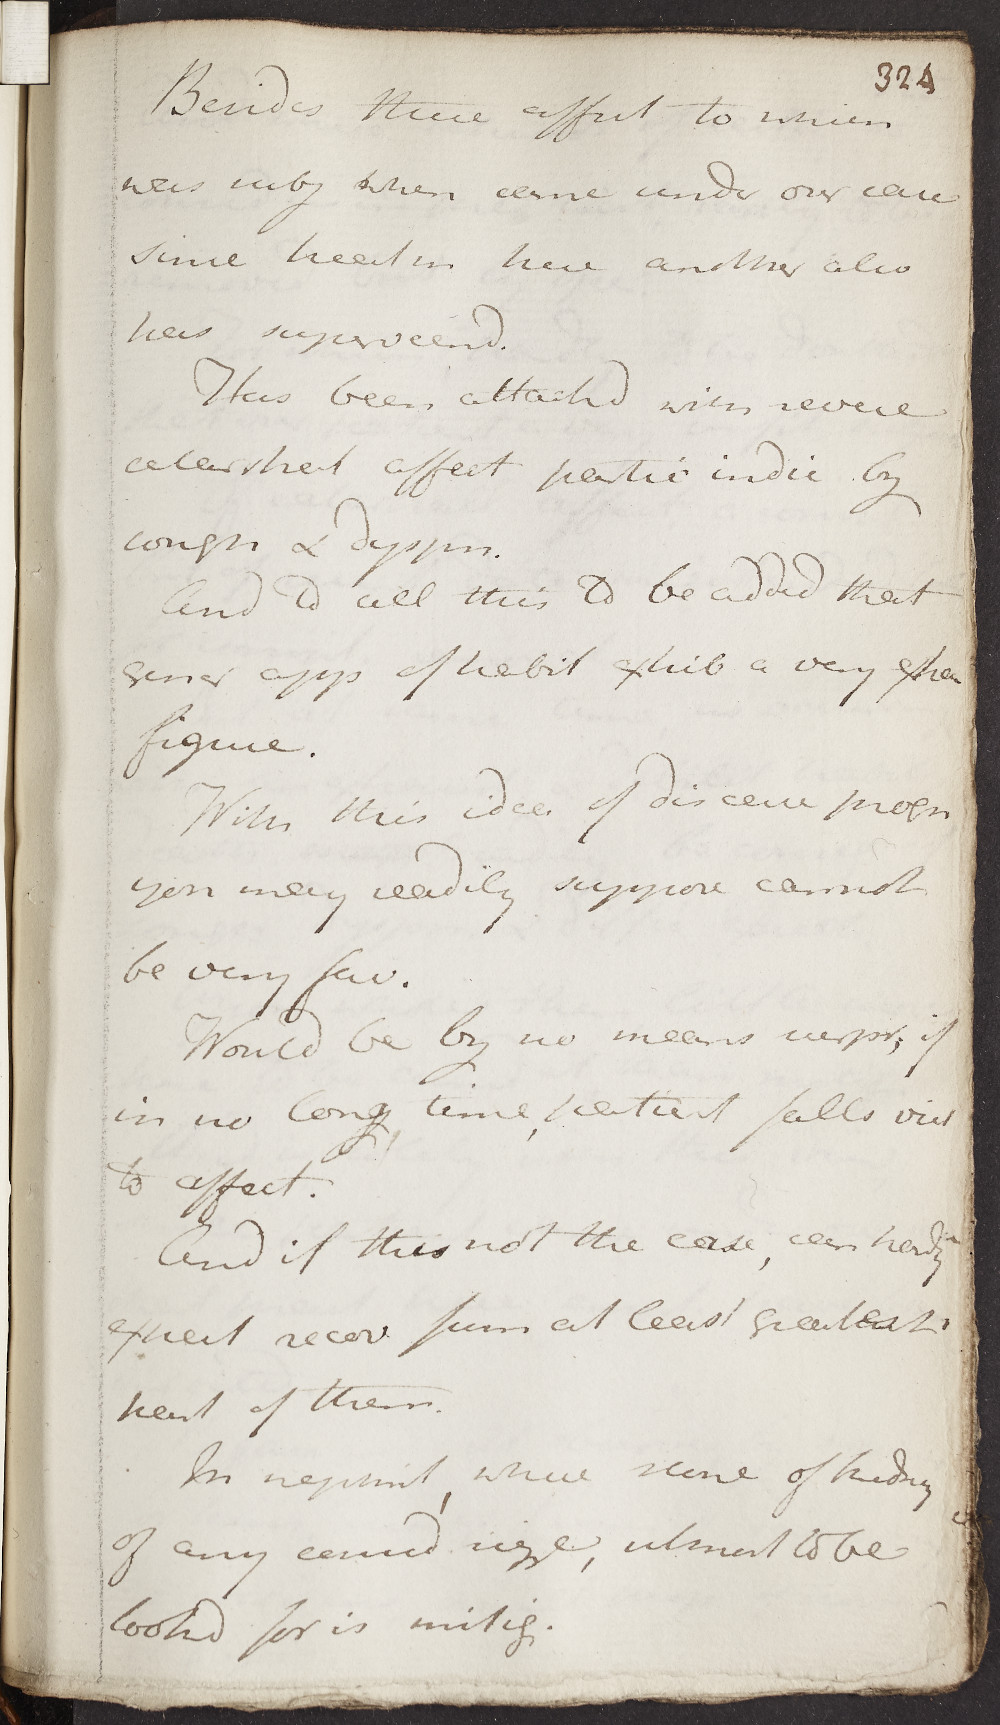 324
Besides these affect to which
was subj when came under our care
since treatm here another also
has superveend.
Has been attackd with severe
catarrhal affect partic indic by
cough & dyspn.
And to all this to be added that
gener app of habit exhib a very
figure.
With this idea of disease progn
you may readily suppose cannot
be very fav.
Would be by no means surpr, if
in no long time, patient falls vict
to affect.
And if this not the case, can hardly
expect recov from at least greatest
part of them.
In nephrit, where stone of kidney
of any consid size, utmost to be
lookd for is mitig.